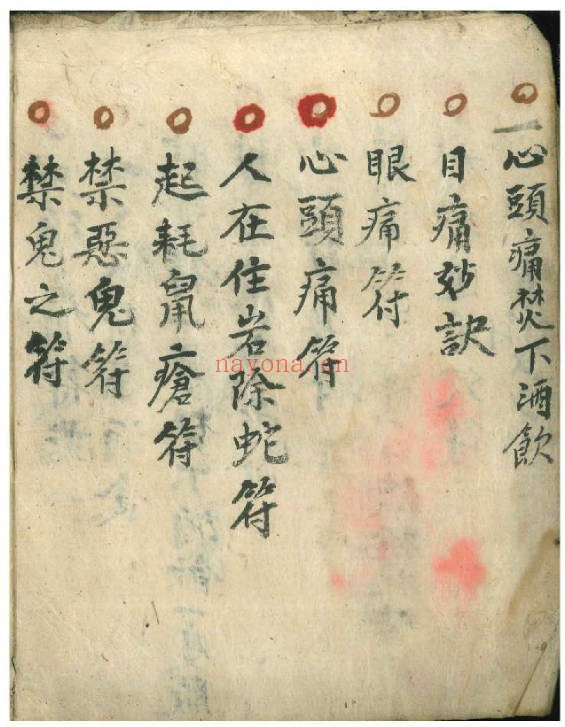 一心頭痛焚下酒飲
目痛妙訣
眼痛符
心頭痛符
人在住岩除蛇符
起耗鼠瘡符
禁惡鬼符
禁鬼之符
nayona.cn